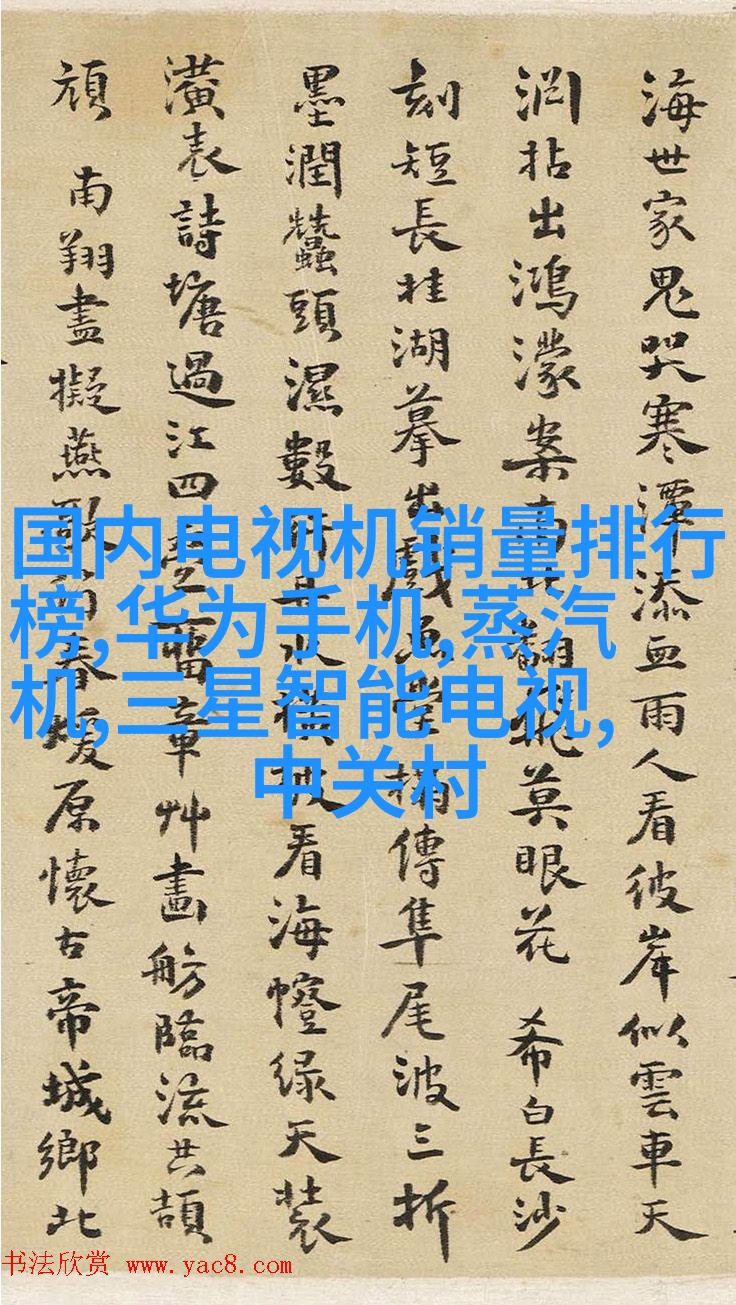 海世家鬼哭寒潭添血雨人看彼岸似雲車天
渕拈出鴻濛案高飛翻桃莫眼花 希白長沙
刻短長桂湖摹出戲魚堂損傳隼尾波三折
墨潤蠶頭濕數行 水 被看海幢绿天裝
潢表詩塘過江四 舊章艸畫舫臨流共頡
頏 南翔盡擬燕歌 春煖原懷古帝城鄉北
国内电视机销量排行
榜,华为手机,蒸汽
机,三星智能电视,
中关村
书法欣赏 www.yac8.com